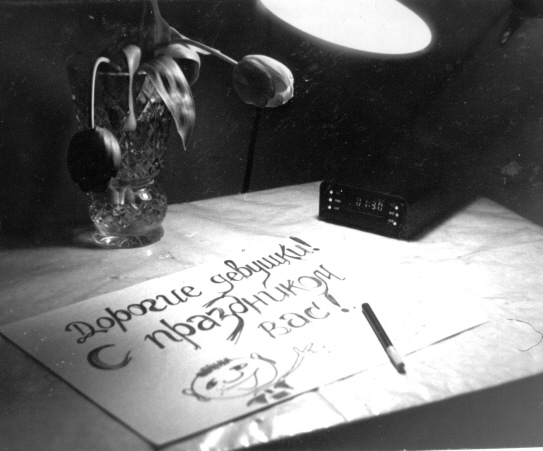 01:30
Дорогие девушки!
С праздником
вас!